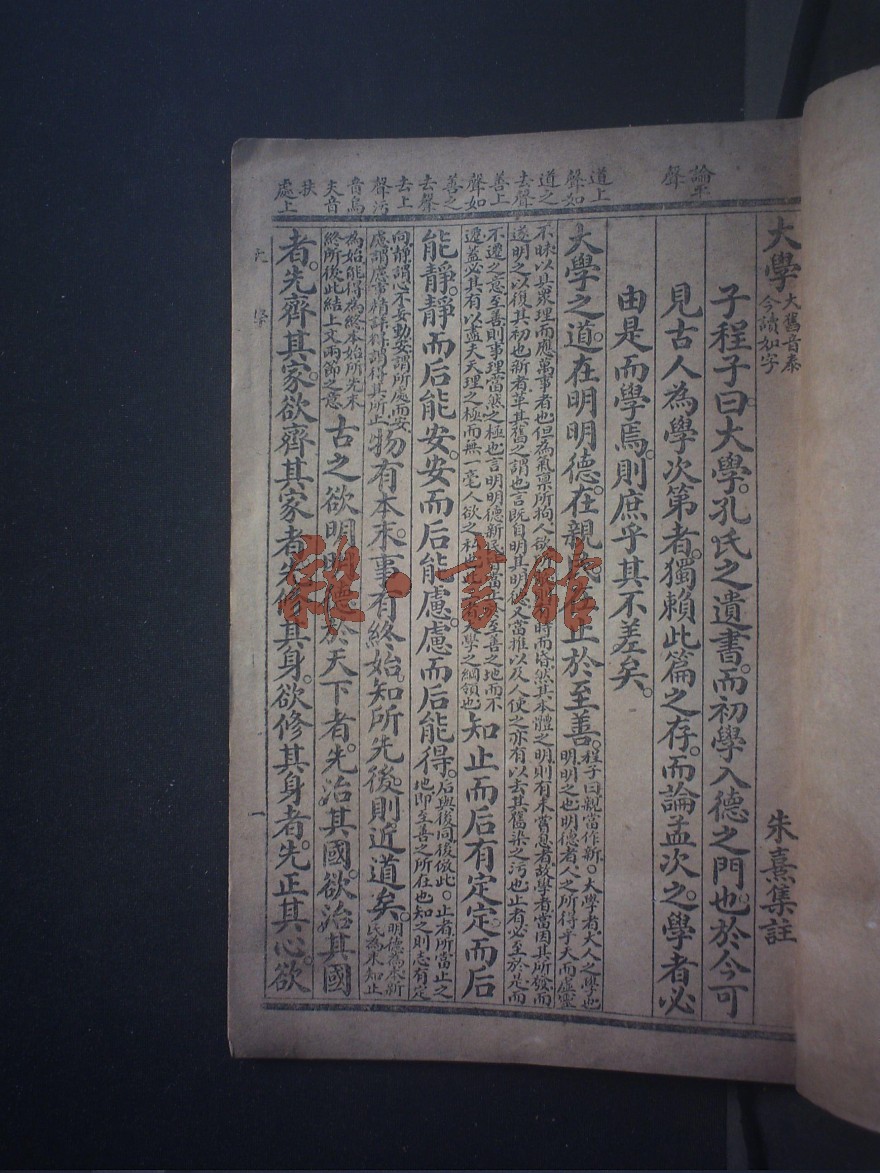 論平
聲
道上
聲如
道之
去聲
善上
聲如
善之
去聲
去上
聲污
音烏
夫音
扶
處上
大學 大舊音泰
今讀如字
朱熹集註
子程子曰大學。孔氏之遺書。而初學入德之門也。於今可
見古人為學次第者。獨賴此篇之存。而論孟次之。學者必
由是而學焉。則庶乎其不差矣。
大學之道。在明明德。在親民。在止於至善。
程子曰親當作新。大學者大人之學也
明明之也明德者人之所得乎天而虛靈
不昧以具衆理而應萬事者也但為氣禀所拘人欲所有時而昏然其本體之明則有未嘗息者故學者當因其所發而
遂明之以復其初也新者革其舊之謂也言既自明其明德又當推以及人使之亦有以去其舊染之污也止者必至於是而
不遷之意至善則事理當然之極也言明明德新民當止至善之地而不
遷蓋必其有以盡夫天理之極而無一毫人欲之私大學之綱領也
知止而后有定。定而后
能靜。靜而后能安。安而后能慮。慮而后能得。
后與後同後倣此。止者所當止之
地即至善之所在也知之則志有定
向靜謂心不妄動安謂所處而安
慮謂慮事精詳得謂得其所止
物有本末。事有終始。知所先後。則近道矣。
明德為本新
民為末知止
為始能得為終本始所先末
終所後此結上文兩節之意
古之欲明明德於天下者。先治其國。欲治其國
者。先齊其家。欲齊其家者。先修其身。欲修其身者。先正其心。欲
學
一
書館